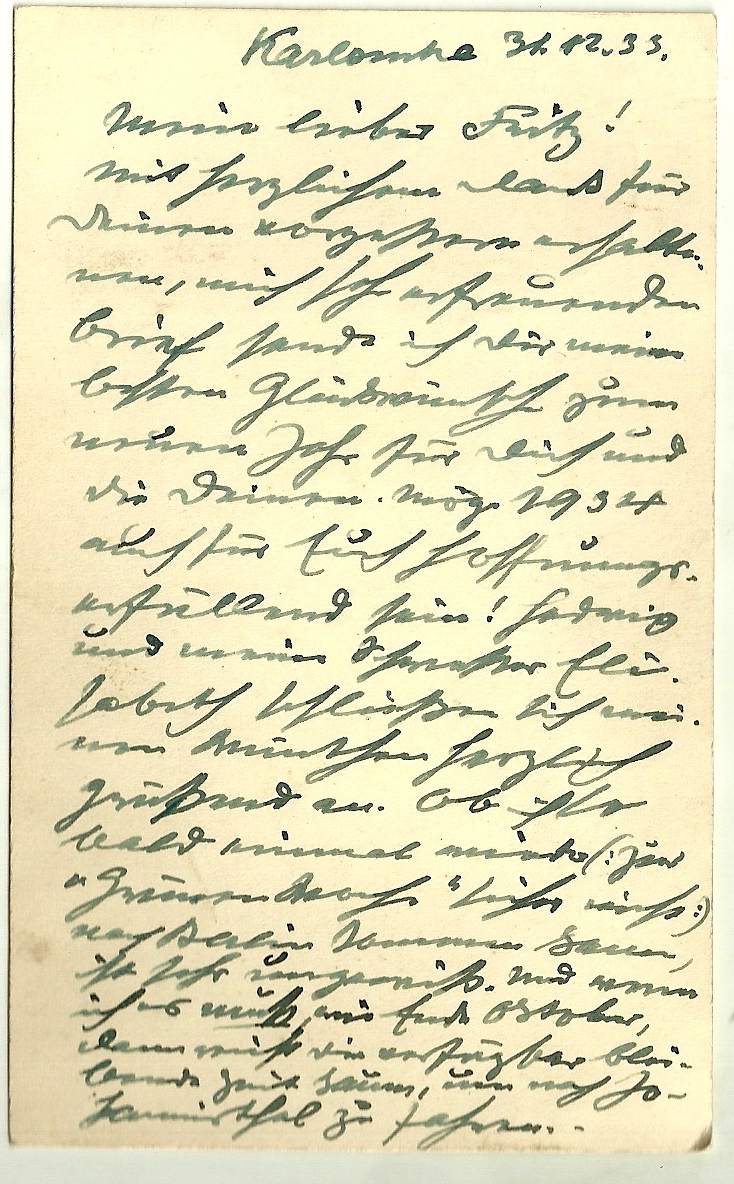 Karlsruhe 31.12.33.
Mein lieber Fritz!
Mit herzlichem Dank für
Deinen vorgestern erhalte-
nen, mich sehr erfreuenden
Brief sende ich Dir meine
besten Glückwünsche zum
neuen Jahr für Dich und
die Deinen. Möge 1934
auch für Euch hoffnungs-
erfüllend sein! Hedwig
und meine Schwester Eli-
sabeth schließen sich mei-
nen Wünschen herzlich
grüßend an. Ob ich
bald einmal wieder (: zur
"Grünen Woche" sicher nicht :)
nach Berlin kommen kann,
ist sehr ungewiß. Und wenn
ich es muß, wie Ende Oktober,
dann reicht die verfügbar blei-
bende Zeit kaum, um nach Jo-
hannisthal zu fahren.-